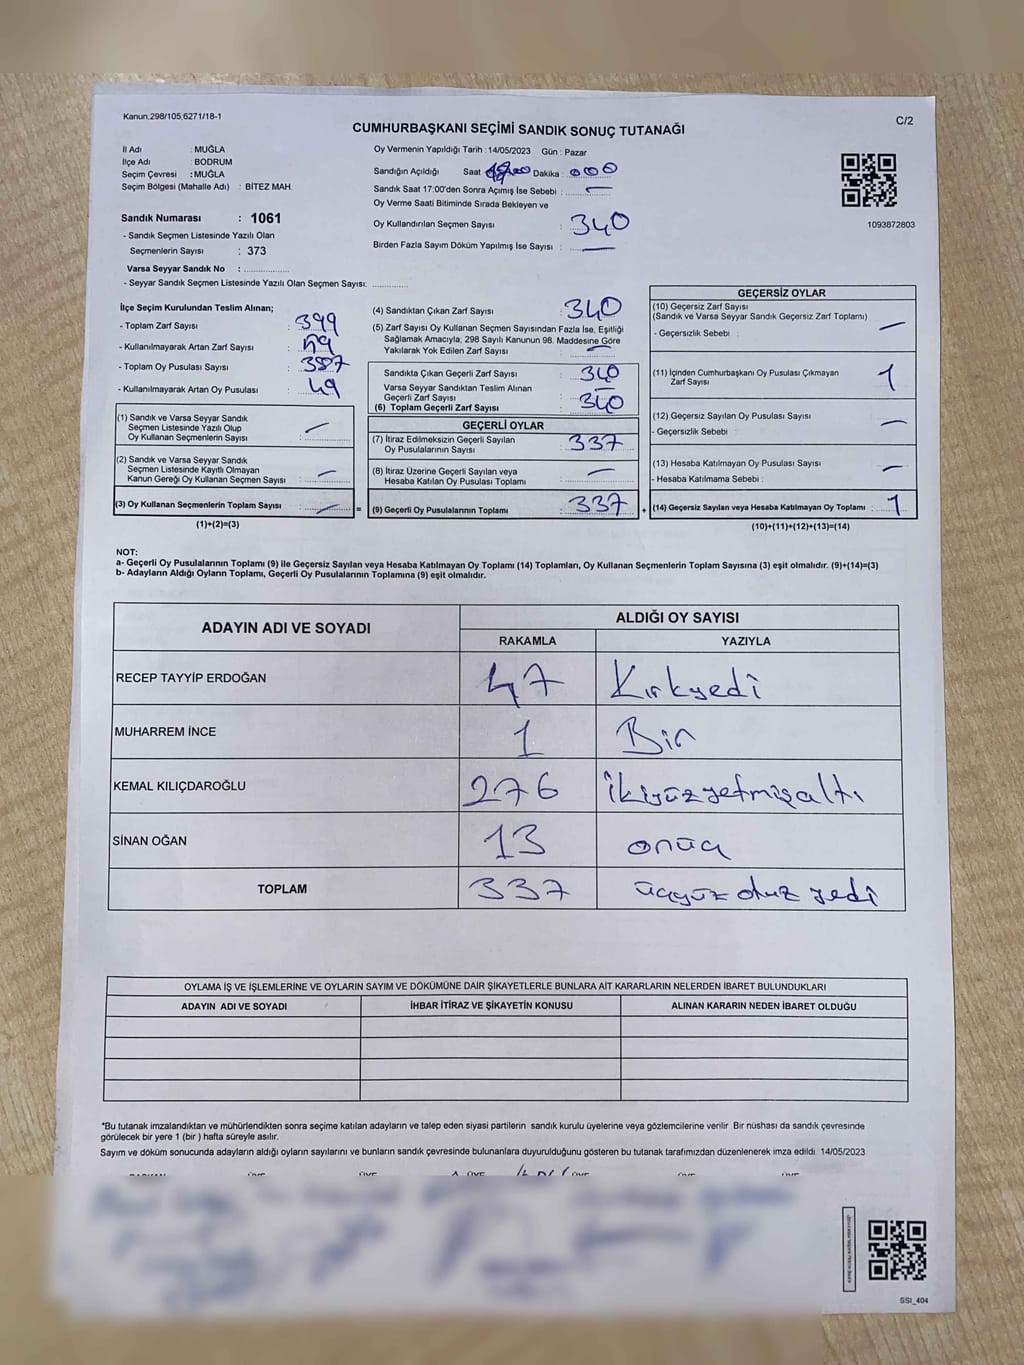 Kanun:298/105,6271/18-1
C/2
CUMHURBAŞKANI SEÇİMİ SANDIK SONUÇ TUTANAĞI
İl Adı : MUĞLA
İlçe Adı : BODRUM
Seçim Çevresi : MUĞLA
Seçim Bölgesi (Mahalle Adı) : BİTEZ MAH.
Sandık Numarası : 1061
- Sandık Seçmen Listesinde Yazılı Olan
Seçmenlerin Sayısı : 373
Varsa Seyyar Sandık No : ................
- Seyyar Sandık Seçmen Listesinde Yazılı Olan Seçmen Sayısı: ............
Oy Vermenin Yapıldığı Tarih : 14/05/2023 Gün : Pazar
Sandığın Açıldığı Saat Dakika : 000
Sandık Saat 17:00'den Sonra Açımış İse Sebebi : —
Oy Verme Saati Bitiminde Sırada Bekleyen ve
Oy Kullandırılan Seçmen Sayısı : 340
Birden Fazla Sayım Döküm Yapılmış İse Sayısı : —
1093872803
İlçe Seçim Kurulundan Teslim Alınan;
- Toplam Zarf Sayısı : 399
- Kullanılmayarak Artan Zarf Sayısı :
- Toplam Oy Pusulası Sayısı :
- Kullanılmayarak Artan Oy Pusulası : 49
(1) Sandık ve Varsa Seyyar Sandık
Seçmen Listesinde Yazılı Olup
Oy Kullanan Seçmenlerin Sayısı : —
(2) Sandık ve Varsa Seyyar Sandık
Seçmen Listesinde Kayıtlı Olmayan
Kanun Gereği Oy Kullanan Seçmen Sayısı : —
(3) Oy Kullanan Seçmenlerin Toplam Sayısı : — =
(1)+(2)=(3)
(4) Sandıktan Çıkan Zarf Sayısı : 340
(5) Zarf Sayısı Oy Kullanan Seçmen Sayısından Fazla İse, Eşitliği
Sağlamak Amacıyla, 298 Sayılı Kanunun 98. Maddesine Göre
Yakılarak Yok Edilen Zarf Sayısı : —
Sandıkta Çıkan Geçerli Zarf Sayısı : 340
Varsa Seyyar Sandıktan Teslim Alınan
Geçerli Zarf Sayısı : —
(6) Toplam Geçerli Zarf Sayısı : 340
GEÇERLİ OYLAR
(7) İtiraz Edilmeksizin Geçerli Sayılan
Oy Pusulalarının Sayısı : 337
(8) İtiraz Üzerine Geçerli Sayılan veya
Hesaba Katılan Oy Pusulası Toplamı : —
(9) Geçerli Oy Pusulalarının Toplamı : 337 +
GEÇERSİZ OYLAR
(10) Geçersiz Zarf Sayısı
(Sandık ve Varsa Seyyar Sandık Geçersiz Zarf Toplamı)
- Geçersizlik Sebebi : —
(11) İçinden Cumhurbaşkanı Oy Pusulası Çıkmayan
Zarf Sayısı 1
(12) Geçersiz Sayılan Oy Pusulası Sayısı —
- Geçersizlik Sebebi :
(13) Hesaba Katılmayan Oy Pusulası Sayısı —
- Hesaba Katılmama Sebebi :
(14) Geçersiz Sayılan veya Hesaba Katılmayan Oy Toplamı : 1
(10)+(11)+(12)+(13)=(14)
NOT:
a- Geçerli Oy Pusulalarının Toplamı (9) ile Geçersiz Sayılan veya Hesaba Katılmayan Oy Toplamı (14) Toplamları, Oy Kullanan Seçmenlerin Toplam Sayısına (3) eşit olmalıdır. (9)+(14)=(3)
b- Adayların Aldığı Oyların Toplamı, Geçerli Oy Pusulalarının Toplamına (9) eşit olmalıdır.
ADAYIN ADI VE SOYADI
ALDIĞI OY SAYISI
RAKAMLA YAZIYLA
RECEP TAYYİP ERDOĞAN 47 Kırkyedi
MUHARREM İNCE 1 Bir
KEMAL KILIÇDAROĞLU 276 ikiyüzyetmişaltı
SİNAN OĞAN 13 onüç
TOPLAM 337 üçyüz otuz yedi
OYLAMA İŞ VE İŞLEMLERİNE VE OYLARIN SAYIM VE DÖKÜMÜNE DAİR ŞİKAYETLERLE BUNLARA AİT KARARLARIN NELERDEN İBARET BULUNDUKLARI
ADAYIN ADI VE SOYADI İHBAR İTİRAZ VE ŞİKAYETİN KONUSU ALINAN KARARIN NEDEN İBARET OLDUĞU
*Bu tutanak imzalandıktan ve mühürlendikten sonra seçime katılan adayların ve talep eden siyasi partilerin sandık kurulu üyelerine veya gözlemcilerine verilir Bir nüshası da sandık çevresinde
görülecek bir yere 1 (bir ) hafta süreyle asılır.
Sayım ve döküm sonucunda adayların aldığı oyların sayılarını ve bunların sandık çevresinde bulunanlara duyurulduğunu gösteren bu tutanak tarafımızdan düzenlenerek imza edildi. 14/05/2023
SSI_404